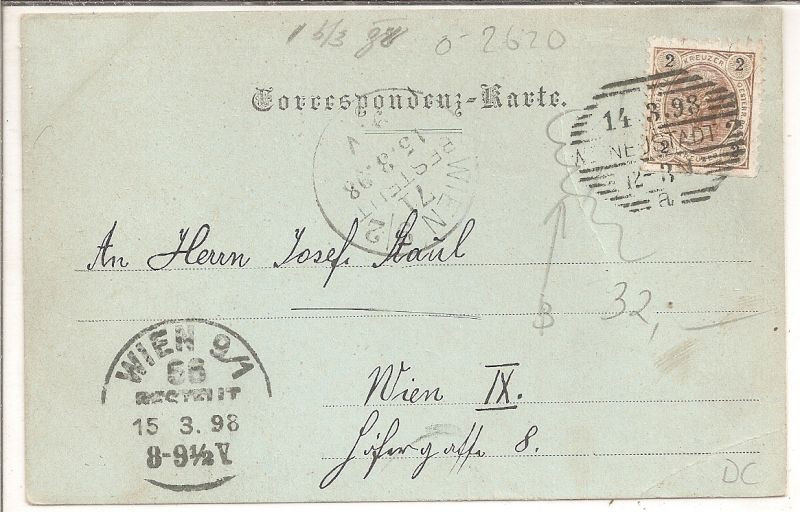 15/3 98 0-2620
Correspondenz-Karte.
2 KREUZER 2
14.3.98
NEUSTADT
12-3 N
a
WIEN
71
BESTELLT
15.3.98
V
2
An Herrn Josef Staul
B
32,—
WIEN 9/1
66
BESTELLT
15 3. 98
8-9½ V
Wien IX.
Höfergasse 8.
DC